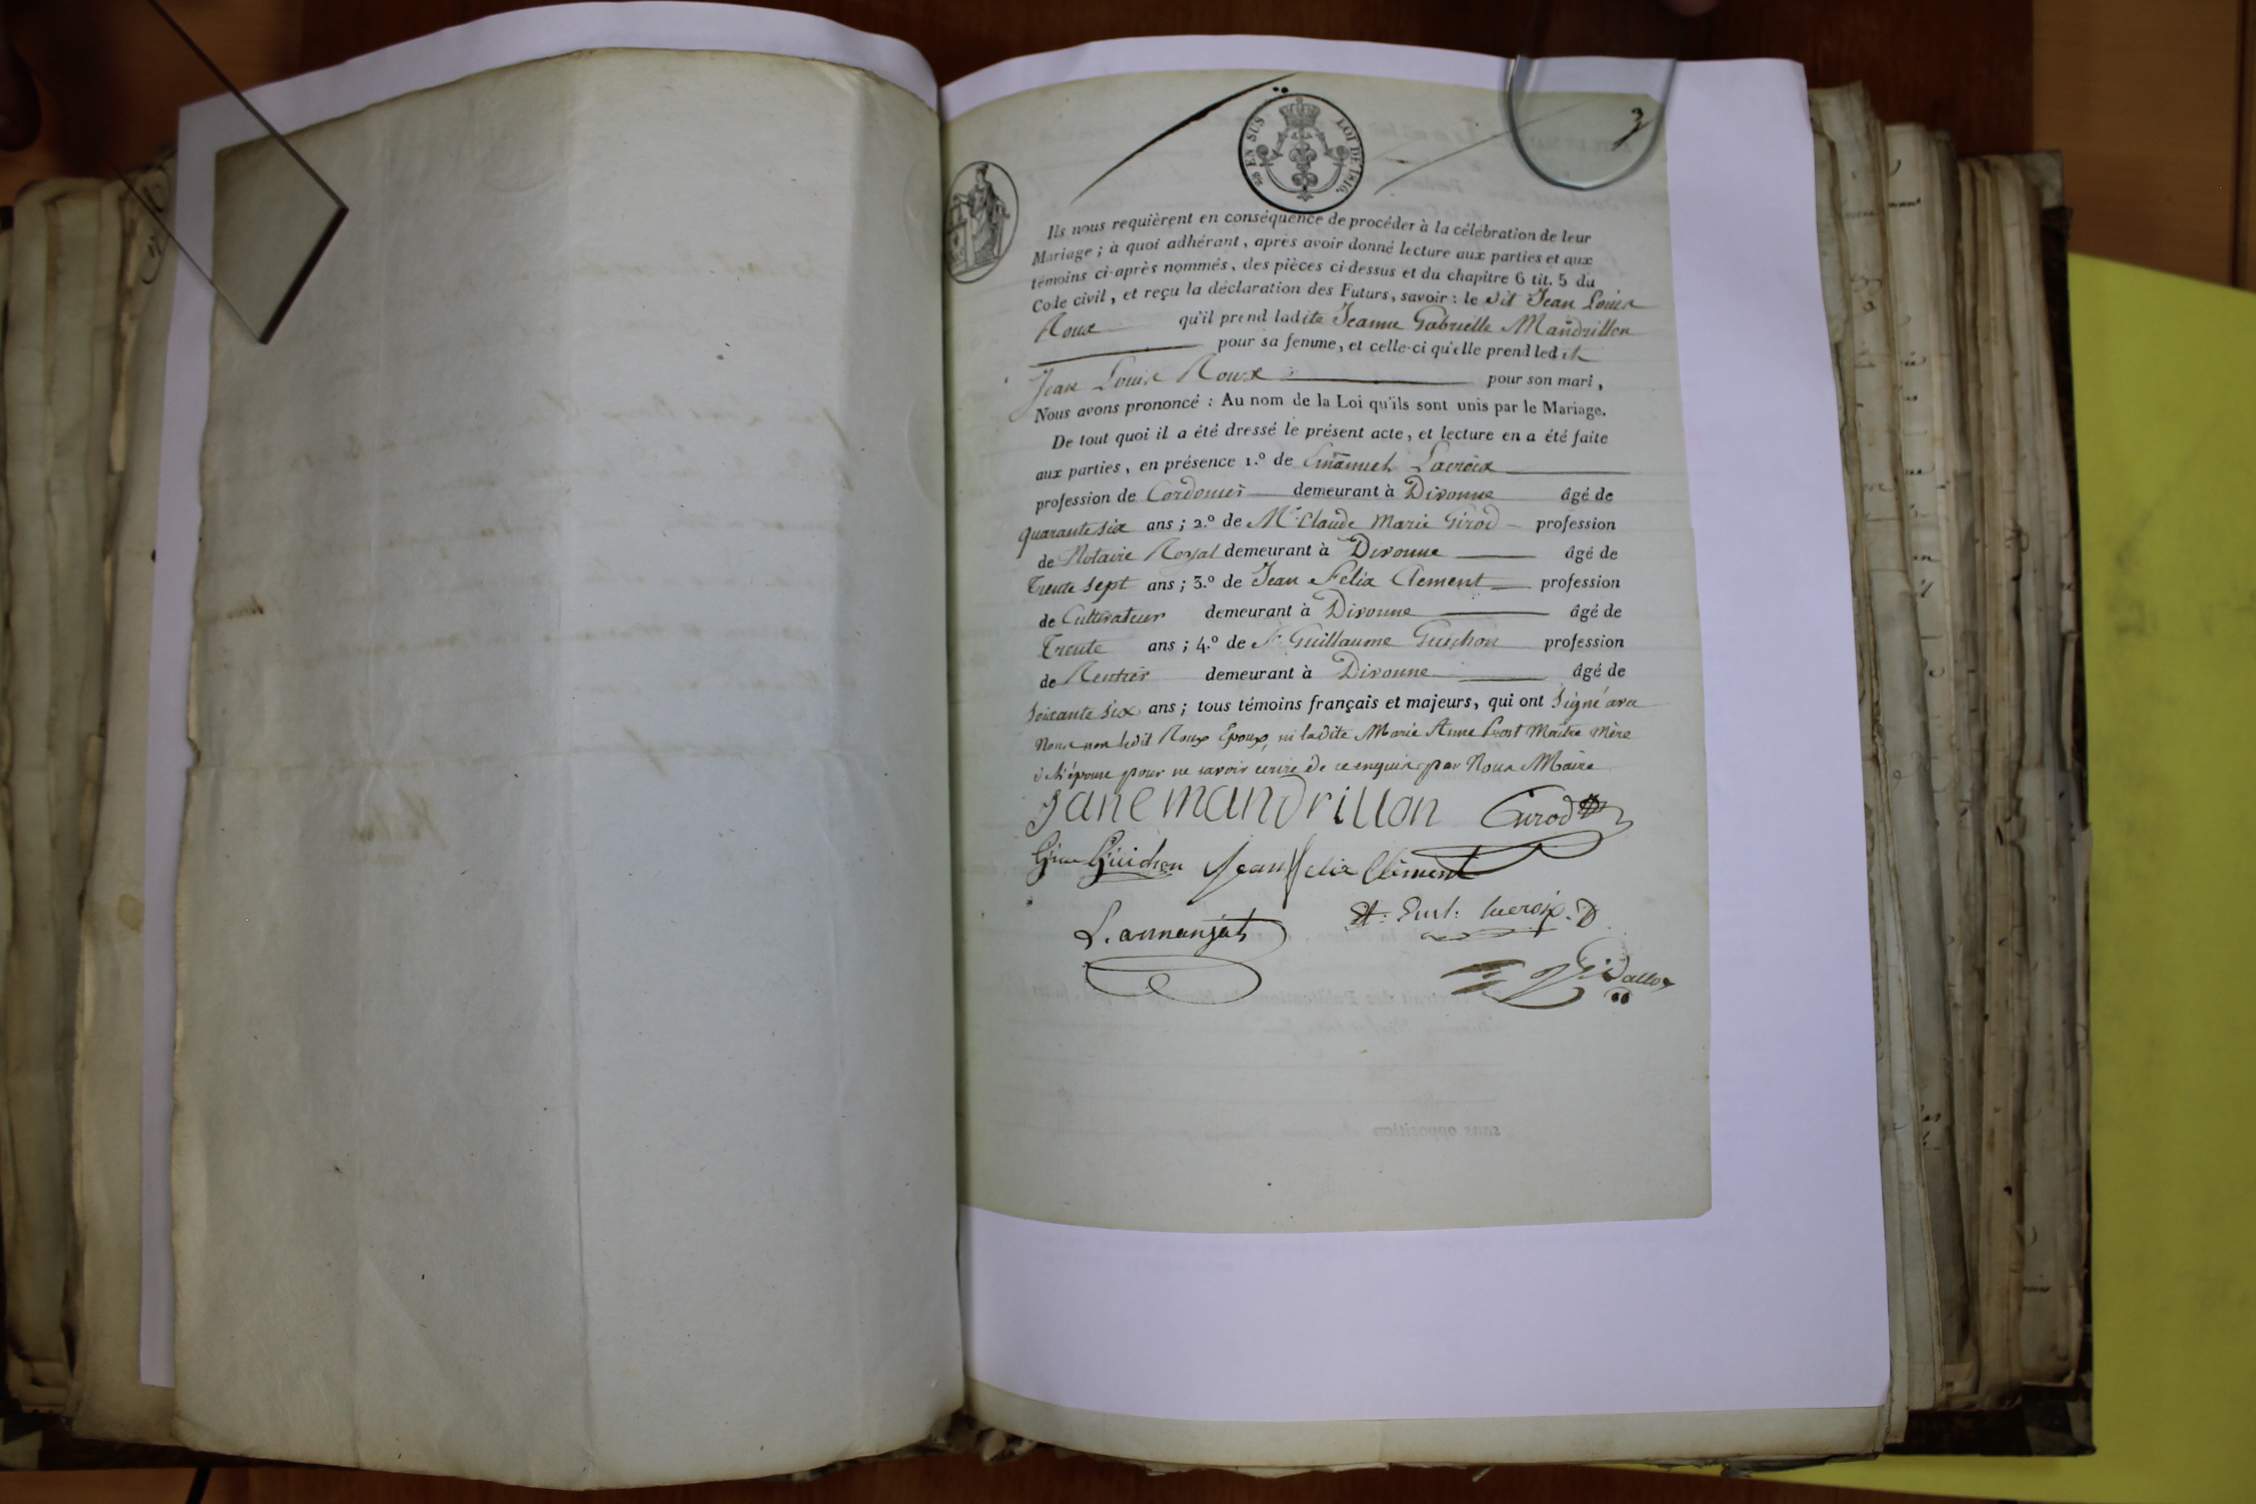 3
EN SUS
LOI DE 1816.
Ils nous requièrent en conséquence de procéder à la célébration de leur
Mariage ; à quoi adhérant, après avoir donné lecture aux parties et aux
témoins ci-après nommés, des pièces ci-dessus et du chapitre 6 tit. 5 du
Code civil, et reçu la déclaration des Futurs, savoir : le dit Jean Louis
Roux qu'il prend ladite Jeanne Gabrielle Mandrillon
pour sa femme, et celle-ci qu'elle prend ledit
Jean Louis Roux pour son mari,
Nous avons prononcé : Au nom de la Loi qu'ils sont unis par le Mariage.
De tout quoi il a été dressé le présent acte, et lecture en a été faite
aux parties, en présence 1.º de Emanuel Lacroix
profession de Cordonier demeurant à Divonne âgé de
quarante six ans ; 2.º de Mr. Claude Marie Girod profession
de Notaire Royal demeurant à Divonne âgé de
Trente sept ans ; 3.º de Jean Felix Clement profession
de Cultivateur demeurant à Divonne âgé de
Trente ans ; 4.º de Sr. Guillaume Guichon profession
de Rentier demeurant à Divonne âgé de
Soixante six ans ; tous témoins français et majeurs, qui ont signé avec
Nous non ledit Roux Epoux, ni ladite Marie Anne Prost Maitre Mère
épouse pour ne savoir ecrire de ce enquis par Nous Maire
Jane mandrillon Girod
Gme Guichon Jean Felix Clément
L. armanjat Eml: lacroix
sans opposition